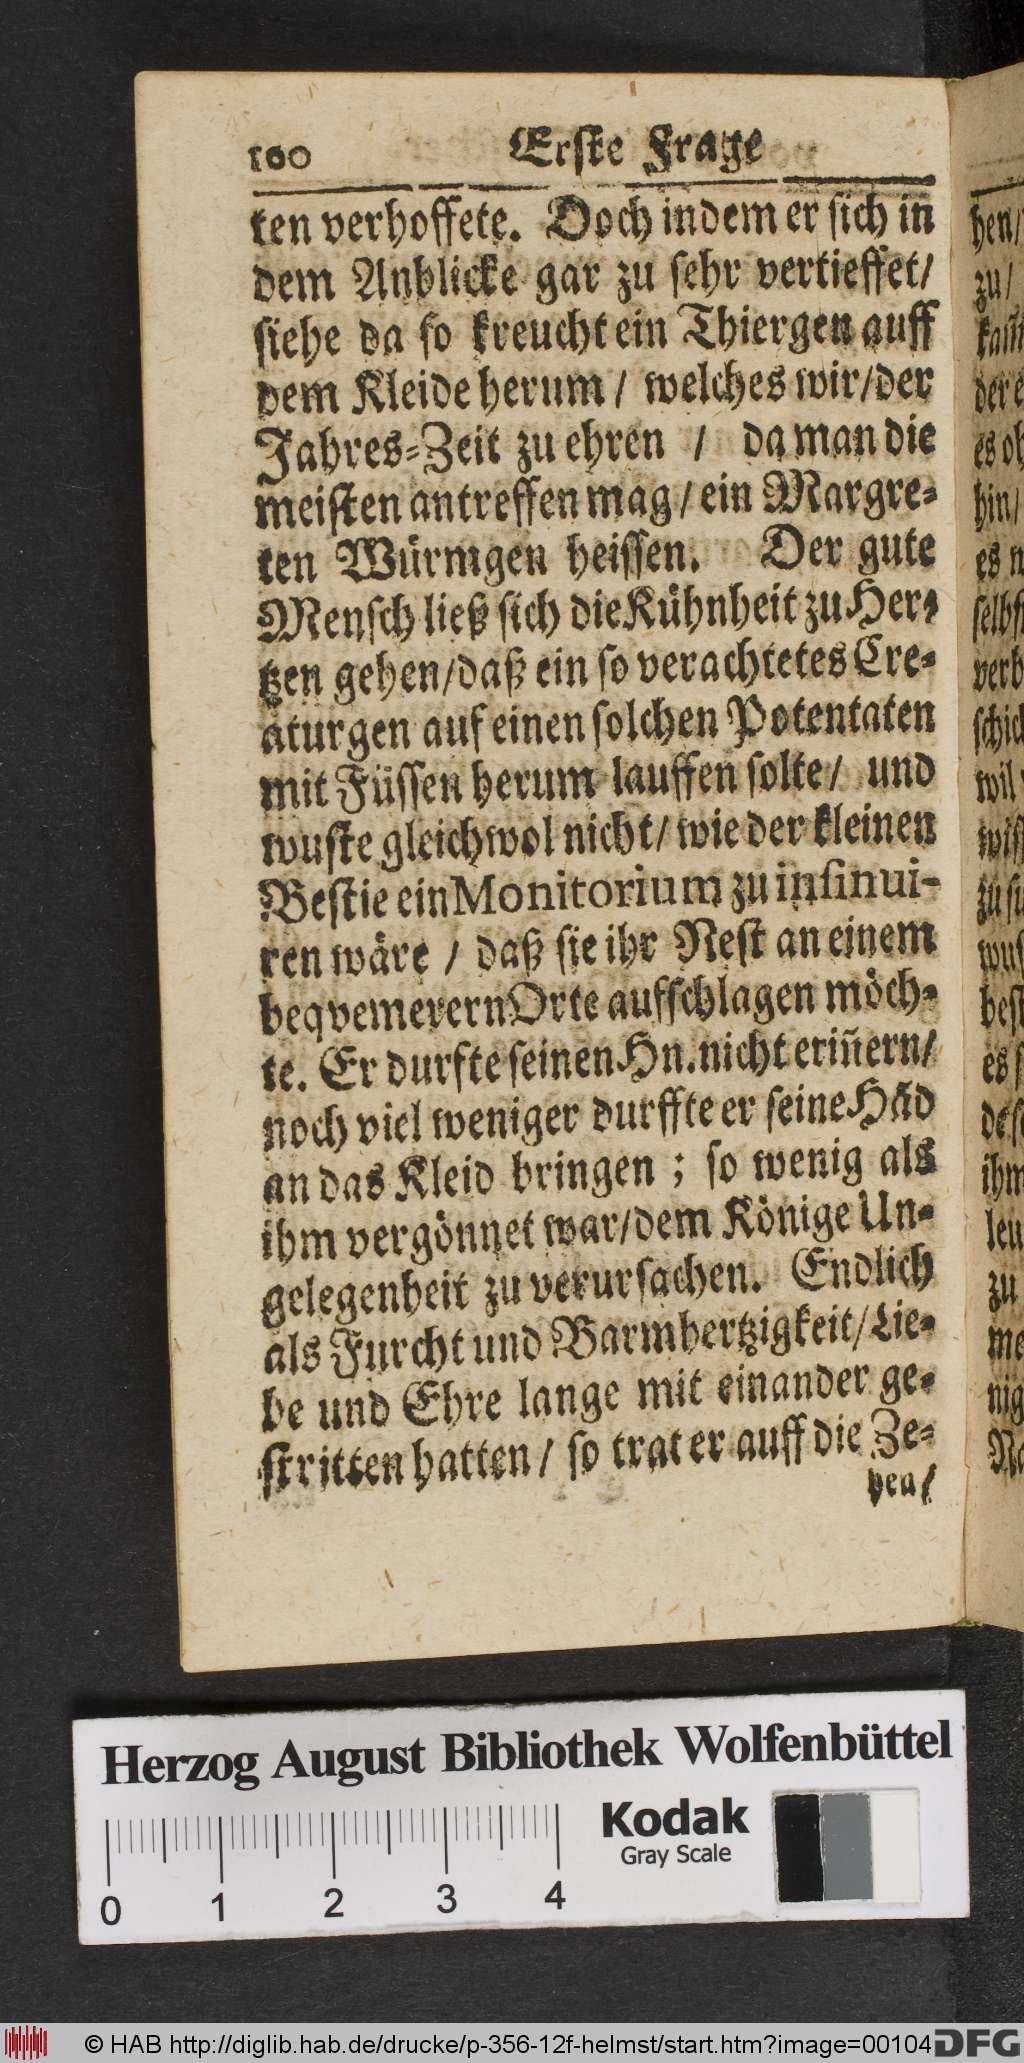 100 Erste Frage
ten verhoffete. Doch indem er sich in
dem Anblicke gar zu sehr vertieffet/
siehe da so kreucht ein Thiergen auff
dem Kleide herum / welches wir/der
Jahres-Zeit zu ehren / da man die
meisten antreffen mag / ein Margre-
ten Würmgen heissen. Der gute
Mensch ließ sich die Kühnheit zu Her-
tzen gehen/daß ein so verachtetes Cre-
aturgen auf einen solchen Potentaten
mit Füssen herum lauffen solte/ und
wuste gleichwol nicht/ wie der kleinen
Bestie ein Monitorium zu insinui-
ren wäre / daß sie ihr Nest an einem
beqvemerern Orte aufschlagen möch-
te. Er durfte seinen Hn. nicht eriñern/
noch viel weniger durffte er seine Hãd
an das Kleid bringen ; so wenig als
ihm vergönnet war/dem Könige Un-
gelegenheit zu verursachen. Endlich
als Furcht und Barmhertzigkeit/Lie-
be und Ehre lange mit einander ge-
stritten hatten / so trat er auff die Ze-
hen/
hen/
zu/
kañ
der e
es ob
hin/
es n
selbs
verb
schick
wil
wis
zu su
wus
best
es s
de se
ihm
leu
zu
me
nig
Na
Herzog August Bibliothek Wolfenbüttel
Kodak
Gray Scale
0 1 2 3 4
© HAB http://diglib.hab.de/drucke/p-356-12f-helmst/start.htm?image=00104
DFG